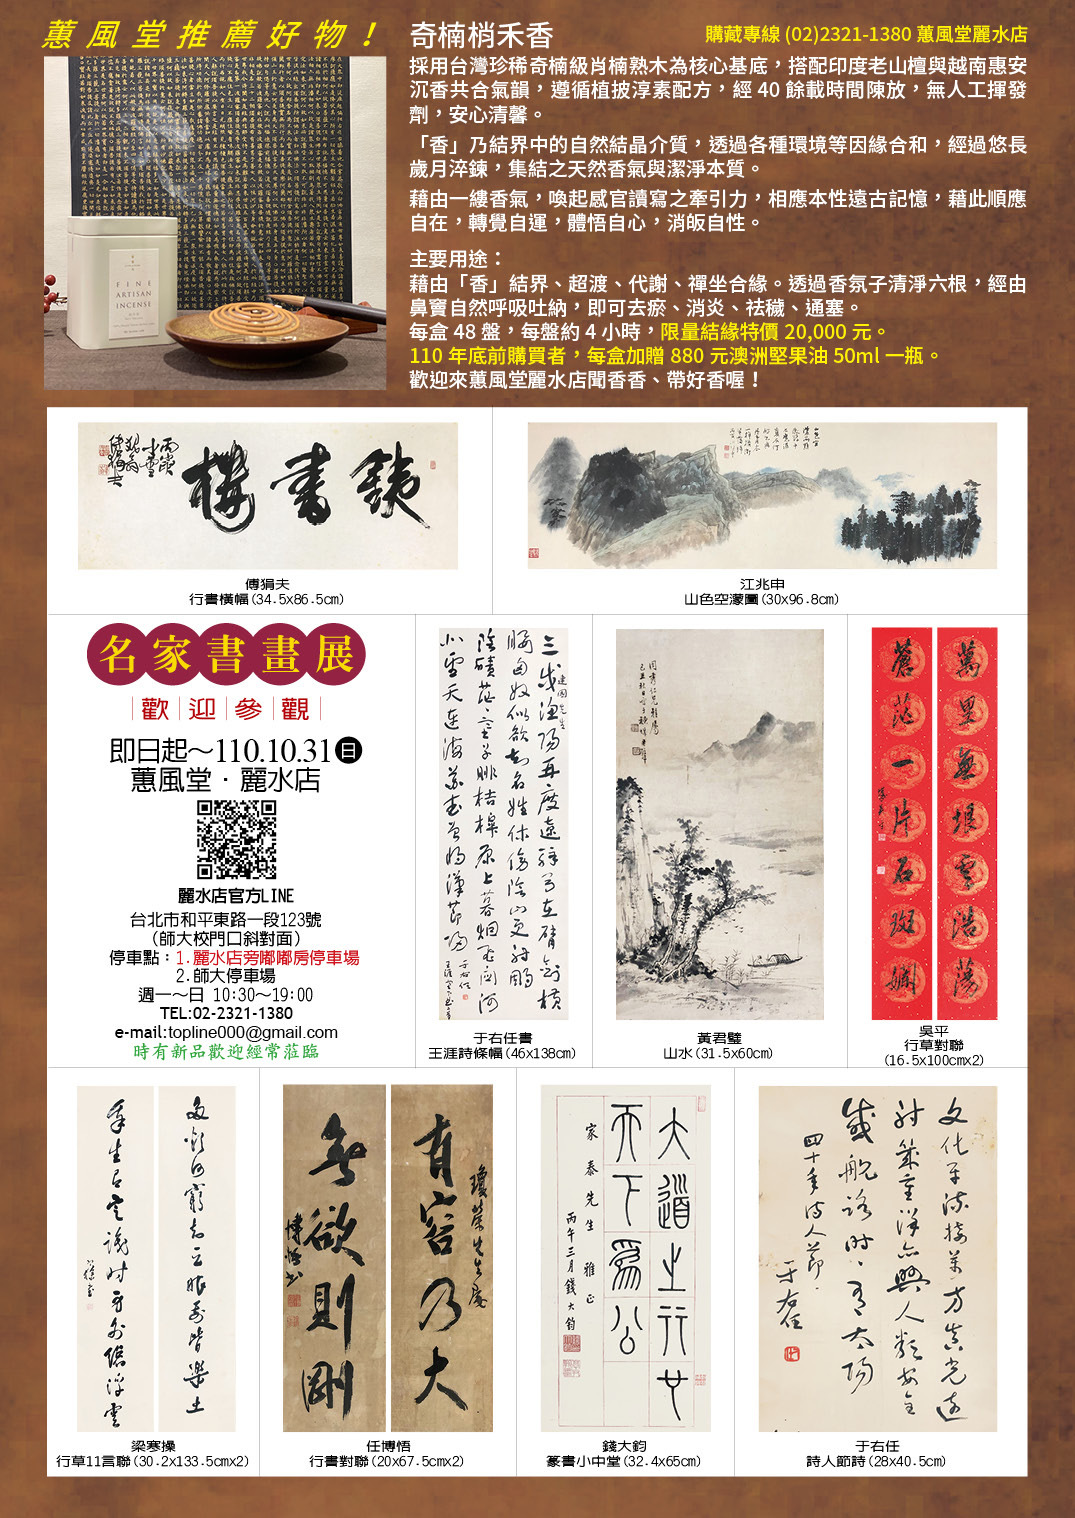 蕙風堂推薦好物！
奇楠梢禾香
購藏專線 (02)2321-1380 蕙風堂麗水店
採用台灣珍稀奇楠級肖楠熟木為核心基底，搭配印度老山檀與越南惠安
沉香共合氣韻，遵循植披淳素配方，經 40 餘載時間陳放，無人工揮發
劑，安心清馨。
「香」乃結界中的自然結晶介質，透過各種環境等因緣合和，經過悠長
歲月淬鍊，集結之天然香氣與潔淨本質。
藉由一縷香氣，喚起感官讀寫之牽引力，相應本性遠古記憶，藉此順應
自在，轉覺自運，體悟自心，消皈自性。
主要用途：
藉由「香」結界、超渡、代謝、禪坐合緣。透過香氛子清淨六根，經由
鼻竇自然呼吸吐納，即可去瘀、消炎、祛穢、通塞。
每盒 48 盤，每盤約 4 小時，限量結緣特價 20,000 元。
110 年底前購買者，每盒加贈 880 元澳洲堅果油 50ml 一瓶。
歡迎來蕙風堂麗水店聞香香、帶好香喔！
FINE
ARTISAN
INCENSE
傅狷夫
行書橫幅(34.5x86.5cm)
江兆申
山色空濛圖(30x96.8cm)
名家書畫展
歡迎參觀
即日起～110.10.31日
蕙風堂‧麗水店
麗水店官方LINE
台北市和平東路一段123號
(師大校門口斜對面)
停車點：1.麗水店旁嘟嘟房停車場
2.師大停車場
週一～日 10:30～19:00
TEL:02-2321-1380
e-mail:topline000@gmail.com
時有新品歡迎經常蒞臨
于右任書
王涯詩條幅(46x138cm)
黃君璧
山水(31.5x60cm)
萬里無垠雲浩蕩
蒼茫一片石斑斕
吳平
行草對聯
(16.5x100cmx2)
梁寒操
行草11言聯(30.2x133.5cmx2)
有容乃大
無欲則剛
任博悟
行書對聯(20x67.5cmx2)
大道之行也
天下為公
家泰先生雅正
丙午三月錢大鈞
錢大鈞
篆書小中堂(32.4x65cm)
于右任
詩人節詩(28x40.5cm)